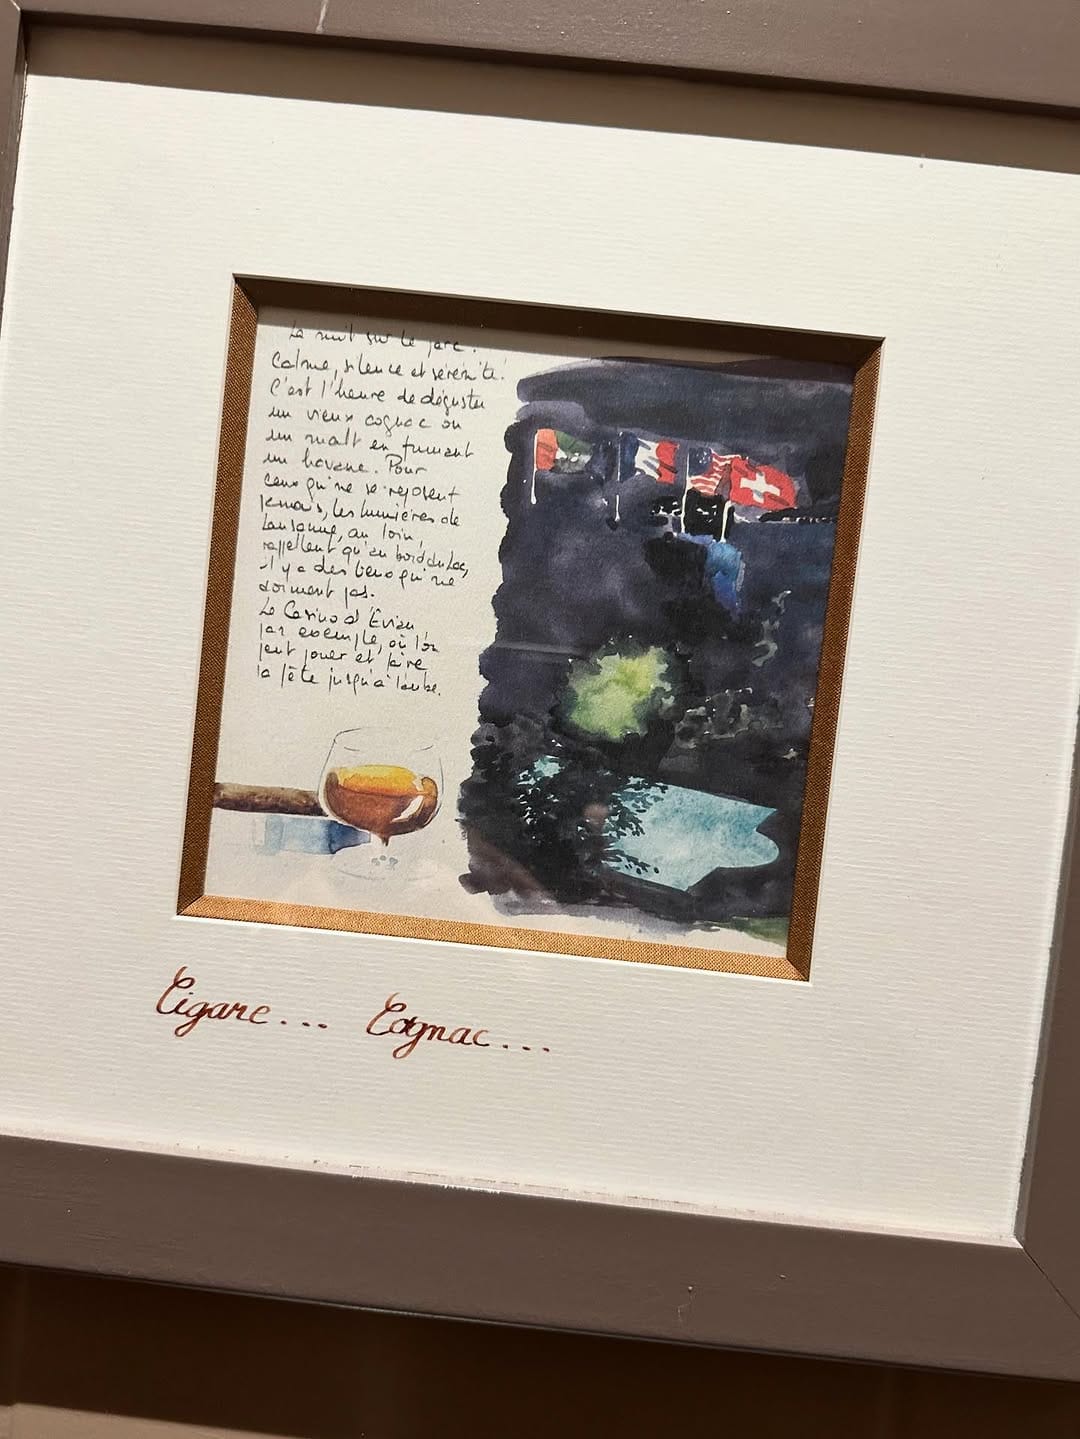 La nuit sur le parc.
Calme, silence et sérénité.
C'est l'heure de déguster
un vieux cognac ou
un malt en fumant
un havane. Pour
ceux qui ne se reposent
jamais, les lumières de
Lausanne, au loin,
rappellent qu'au bord du Lac,
il y a des lieux qui ne
dorment pas.
Le Casino d'Evian
par exemple, où l'on
peut jouer et faire
la fête jusqu'à l'aube.
Cigare... Cognac...